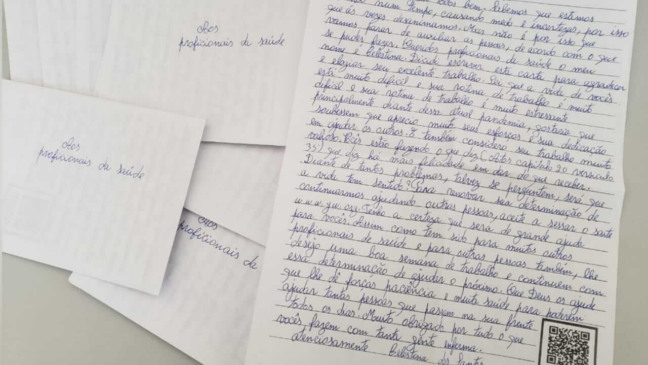 Aos
profissionais de saúde
Aos
profissionais de saúde
Aos
profissionais de
bem, sabemos que estamos
num tempo, causando medo e incertezas, por isso
que às vezes desanimamos. Mas não é por isso que
vamos deixar de auxiliar as pessoas, de acordo com o que
se pode fazer. Queridos profissionais de saúde o meu
nome é Celestina. Decide escrever esta carta para agradecer
e elogiar seu excelente trabalho. Sei que a vida de vocês
está muito difícil e sua rotina de trabalho é muito
difícil e sua rotina de trabalho é muito estressante
principalmente durante essa atual pandemia, gostaria que
soubessem que aprecio muito seu esforço e sua dedicação
em ajudar os outros. E também considero seu trabalho muito
valioso. Vocês estão fazendo o que diz (Atos capítulo 20 versículo
35) que diz há mais felicidade em dar do que receber.
Diante de tantos problemas, talvez se perguntem, será que
a vida tem sentido? Para renovar sua determinação de
continuarmos ajudando outras pessoas, aceite a acessar o saite
w.w.w. que org. Tenho a certeza qui sera de grande ajuda
para vocês. Assim como tem sido para muitos outros
profissionais de saúde e para outras pessoas também, lhe
desejo uma boa semana de trabalho e continuem com
essa determinação de ajudar o próximo. Que Deus os ajude
que lhe dê forças paciência e muita saúde para poderem
ajudar tantas pessoas que passam na sua frente
todos os dias. Muito obrigado por tudo o que
vocês fazem com tanta gente enferma.
atenciosamente Celestina